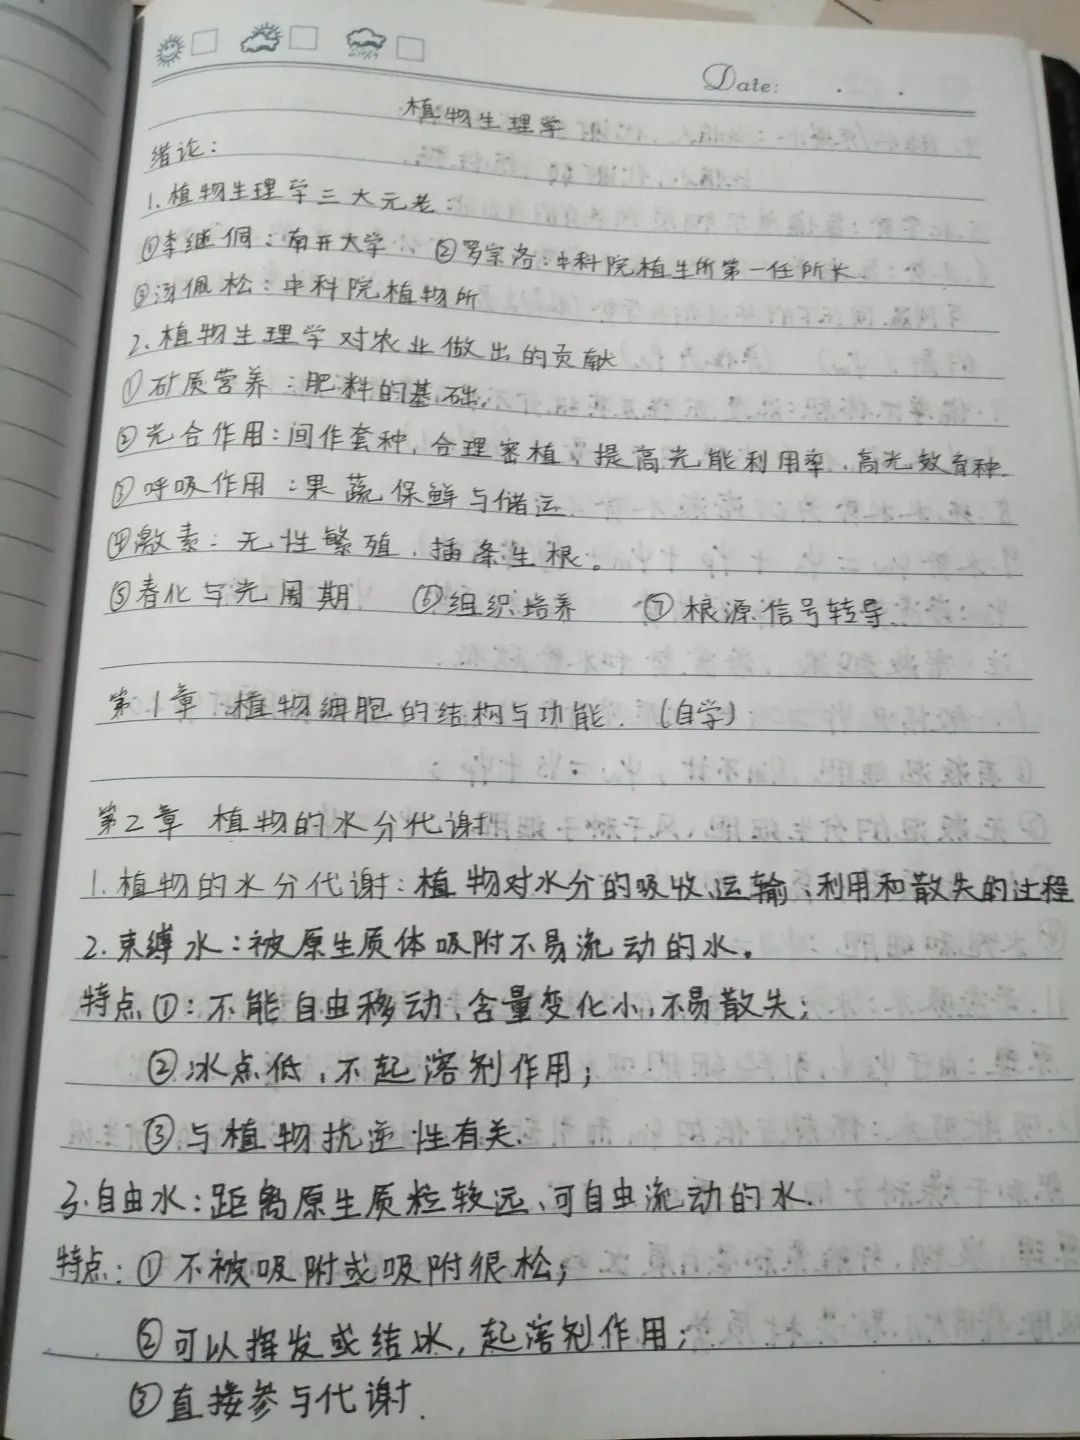 Date:
植物生理学
绪论：
1.植物生理学三大元老：
①李继侗：南开大学 ②罗宗洛：中科院植生所第一任所长.
③汤佩松：中科院植物所
2.植物生理学对农业做出的贡献
①矿质营养：肥料的基础.
②光合作用：间作套种，合理密植，提高光能利用率，高光效育种.
③呼吸作用：果蔬保鲜与储运
④激素：无性繁殖，插条生根。
⑤春化与光周期 ⑥组织培养 ⑦根源信号转导.
第1章 植物细胞的结构与功能.（自学）
第2章 植物的水分代谢
1.植物的水分代谢：植物对水分的吸收、运输、利用和散失的过程
2.束缚水：被原生质体吸附不易流动的水。
特点①：不能自由移动，含量变化小，不易散失；
②冰点低，不起溶剂作用；
③与植物抗逆性有关.
3.自由水：距离原生质粒较远、可自由流动的水.
特点：①不被吸附或吸附很松；
②可以挥发或结冰，起溶剂作用；
③直接参与代谢.